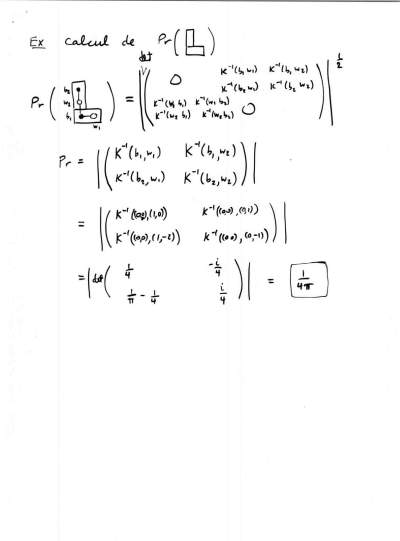 Ex calcul de Pr( )
det
Pr( b₂ w₂ b₁ w₁ ) = |( 0 K⁻¹(b₁ w₁) K⁻¹(b₁ w₂)
K⁻¹(b₂ w₁) K⁻¹(b₂ w₂)
K⁻¹(w₁ b₁) K⁻¹(w₁ b₂)
K⁻¹(w₂ b₁) K⁻¹(w₂ b₂) 0 )|^½
Pr = |( K⁻¹(b₁,w₁) K⁻¹(b₁,w₂)
K⁻¹(b₂,w₁) K⁻¹(b₂,w₂) )|
= |( K⁻¹((0,0),(1,0)) K⁻¹((0,0),(0,1))
K⁻¹((0,0),(1,-2)) K⁻¹((0,0),(0,-1)) )|
= |det( 1/4 -i/4
1/π - 1/4 i/4 )| = 1/4π